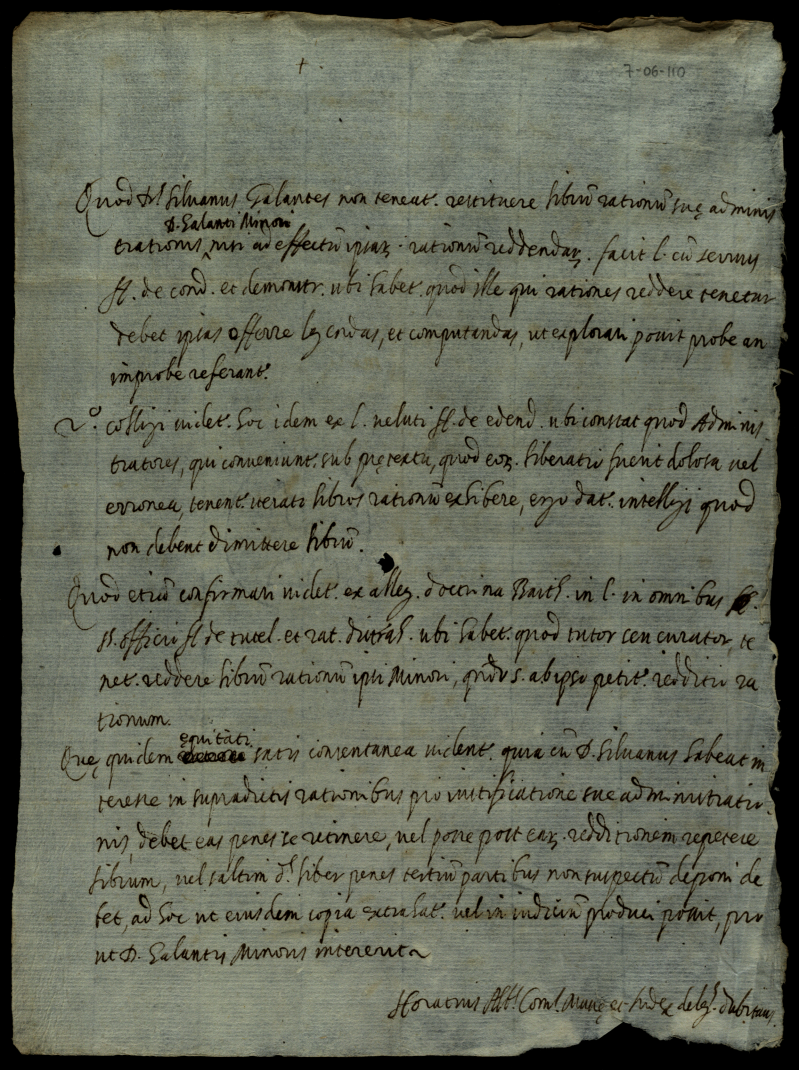 +
7-06-110
Quod D. Silvanus Galantes non teneat. restituere librũ rationũ suę adminis
D. Galanti Minori
trationis, nisi ad effectũ ipsaꝝ. rationũ reddendaꝝ. facit l. cũ servus
ff. de cond. et demonstr. ubi habet. quod ille qui rationes reddere tenetur
debet ipsas offerre legendas, et computandas, ut explorari possit probe an
improbe referant.
2.º colligi videt. hoc idem ex l. veluti ff. de edend. ubi constat quod Adminis
tratores, qui conveniunt. sub prętextu, quod eoꝝ. liberatio fuerit dolosa vel
erronea, tenent. iterato libros rationũ exhibere, ergo dat. intelligi quod
non debent dimittere librũ.
Quod etiã confirmari videt. ex alleg. doctrina Barth. in l. in omnibus
§. officii ff de tutel. et rat. distrah. ubi habet. quod tutor seu curator, te
net. reddere librũ rationũ ipsi Minori, ab ipso petit. redditio ra
tionum.
ęquitati
Quę quidem satis consentanea vident. quia cũ D. Silvanus habeat in
teresse in supradictis rationibus pro iustificatione sue administratio
nis, debet eas penes se retinere, vel posse post eaꝝ. redditionem repetere
librum, vel saltim liber penes tertiũ partibus non suspectũ deponi de
bet, ad hoc ut eiusdem copia extrahat. vel in iudiciũ produci possit, pro
ut D. Galantis Minoris intererit
Horatius et Iudex deleg.